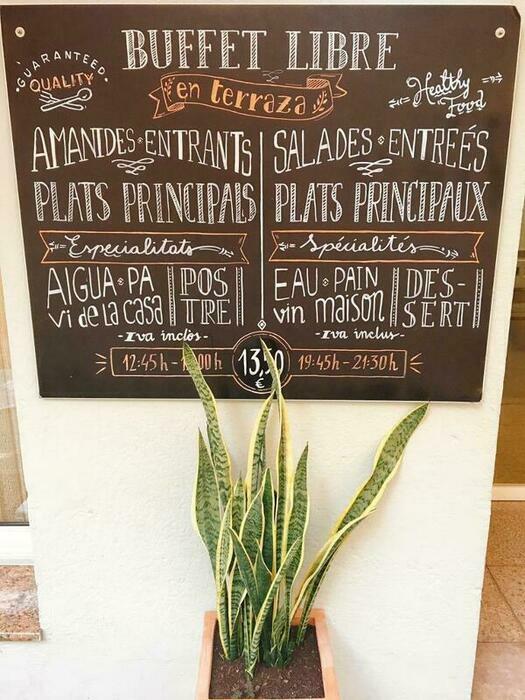 BUFFET LIBRE
en terraza
GUARANTEED
QUALITY
Healthy
Food
AMANIDES · ENTRANTS
PLATS PRINCIPALS
Especialitats
AIGUA · PA
vi de la casa
POS
TRE
-Iva inclòs-
12:45h -
SALADES · ENTREÉS
PLATS PRINCIPAUX
Spécialités
EAU · PAIN
vin maison
DES-
SERT
-Iva inclus-
13,50
€
19:45h - 21:30h